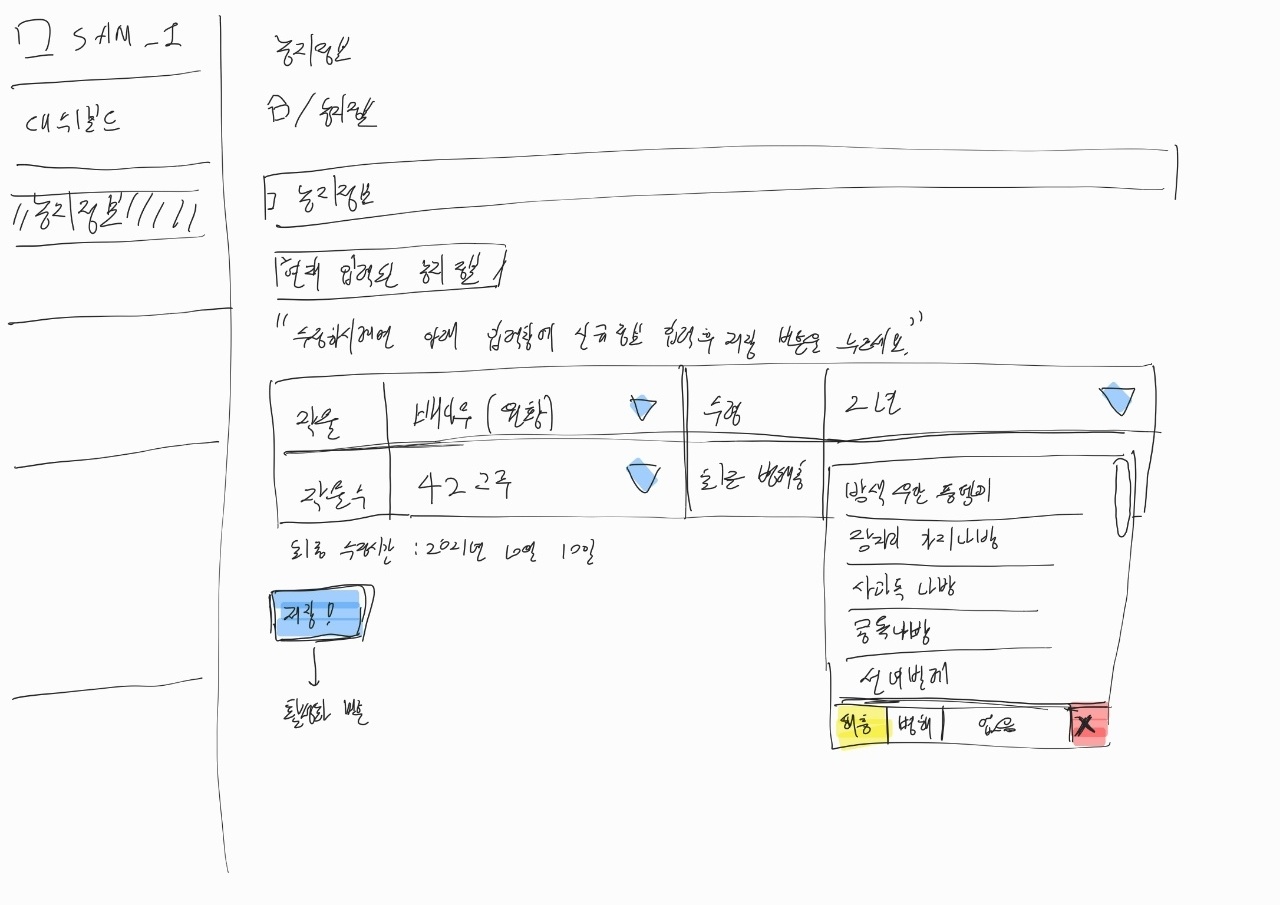 SAM_I
대쉬보드
농지정보
농지정보
/ 농지정보
농지정보
현재 입력된 농지 정보
"수정하시려면 아래 입력창에 신규정보 입력 후 저장 버튼을 누르세요."
작물 배나무 (원황) 수령 21년
작물수 42그루 최근 병해충
갈색 우단 풍뎅이
꼬마나방
사과독나방
콩독나방
선녀벌레
해충 병해 없음 X
최종 수정시간 : 2021년 10월 10일
저장!
활성화 버튼